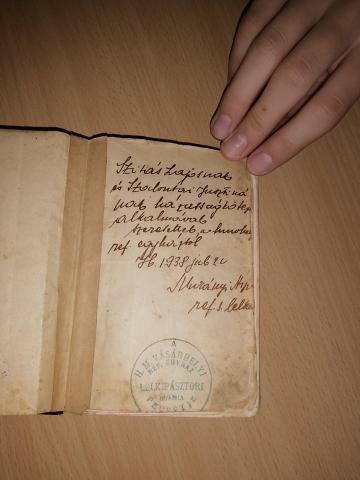 Szitás Lajosnak
és Szalontai Jusztiná
nak házasságkötés
alkalmával
szeretettel a
ref. egyháztól
1938 júl 2
Murányi
ref. s. lelké
A
H. M. VÁSÁRHELYI
REF. EGYHÁZ
LELKIPÁSZTORI